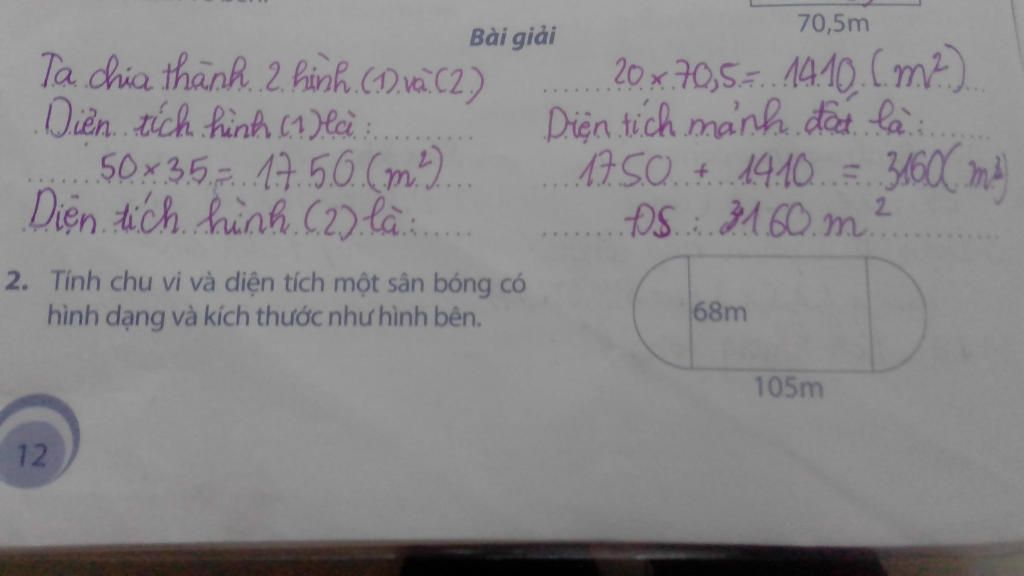 70,5m
Bài giải
Ta chia thành 2 hình (1) và (2)
Diện tích hình (1) là:
50 × 35 = 1750 (m²)
Diện tích hình (2) là:
20 × 70,5 = 1410 (m²)
Diện tích mảnh đất là:
1750 + 1410 = 3160 (m²)
ĐS: 3160 m²
2. Tính chu vi và diện tích một sân bóng có
hình dạng và kích thước như hình bên.
68m
105m
12